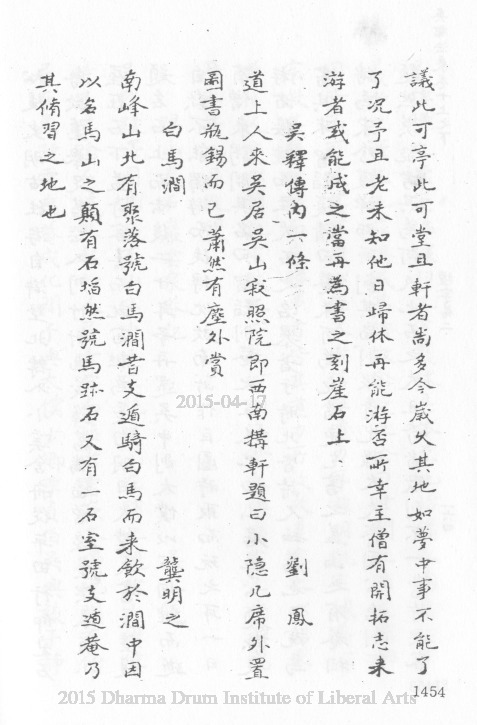 議此可亭此可堂且軒者尚多今歲久其地如夢中事不能了
了况予且老未知他日歸休再能游否所幸主僧有開拓志来
游者或能成之當再為書之刻崖石上
吳釋傳內六條 劉鳳
道上人來吳居吳山寂照院即西南搆軒題曰小隐几席外置
圖書瓶錫而已蕭然有塵外賞
白馬澗 龔明之
南峰山北有聚落號白馬澗昔支遁騎白馬而来飲於澗中因
以名馬山之顛有石焰然號馬跡石又有一石室號支遁菴乃
其脩習之地也
2015-04-17
1454
2015 Dharma Drum Institute of Liberal Arts